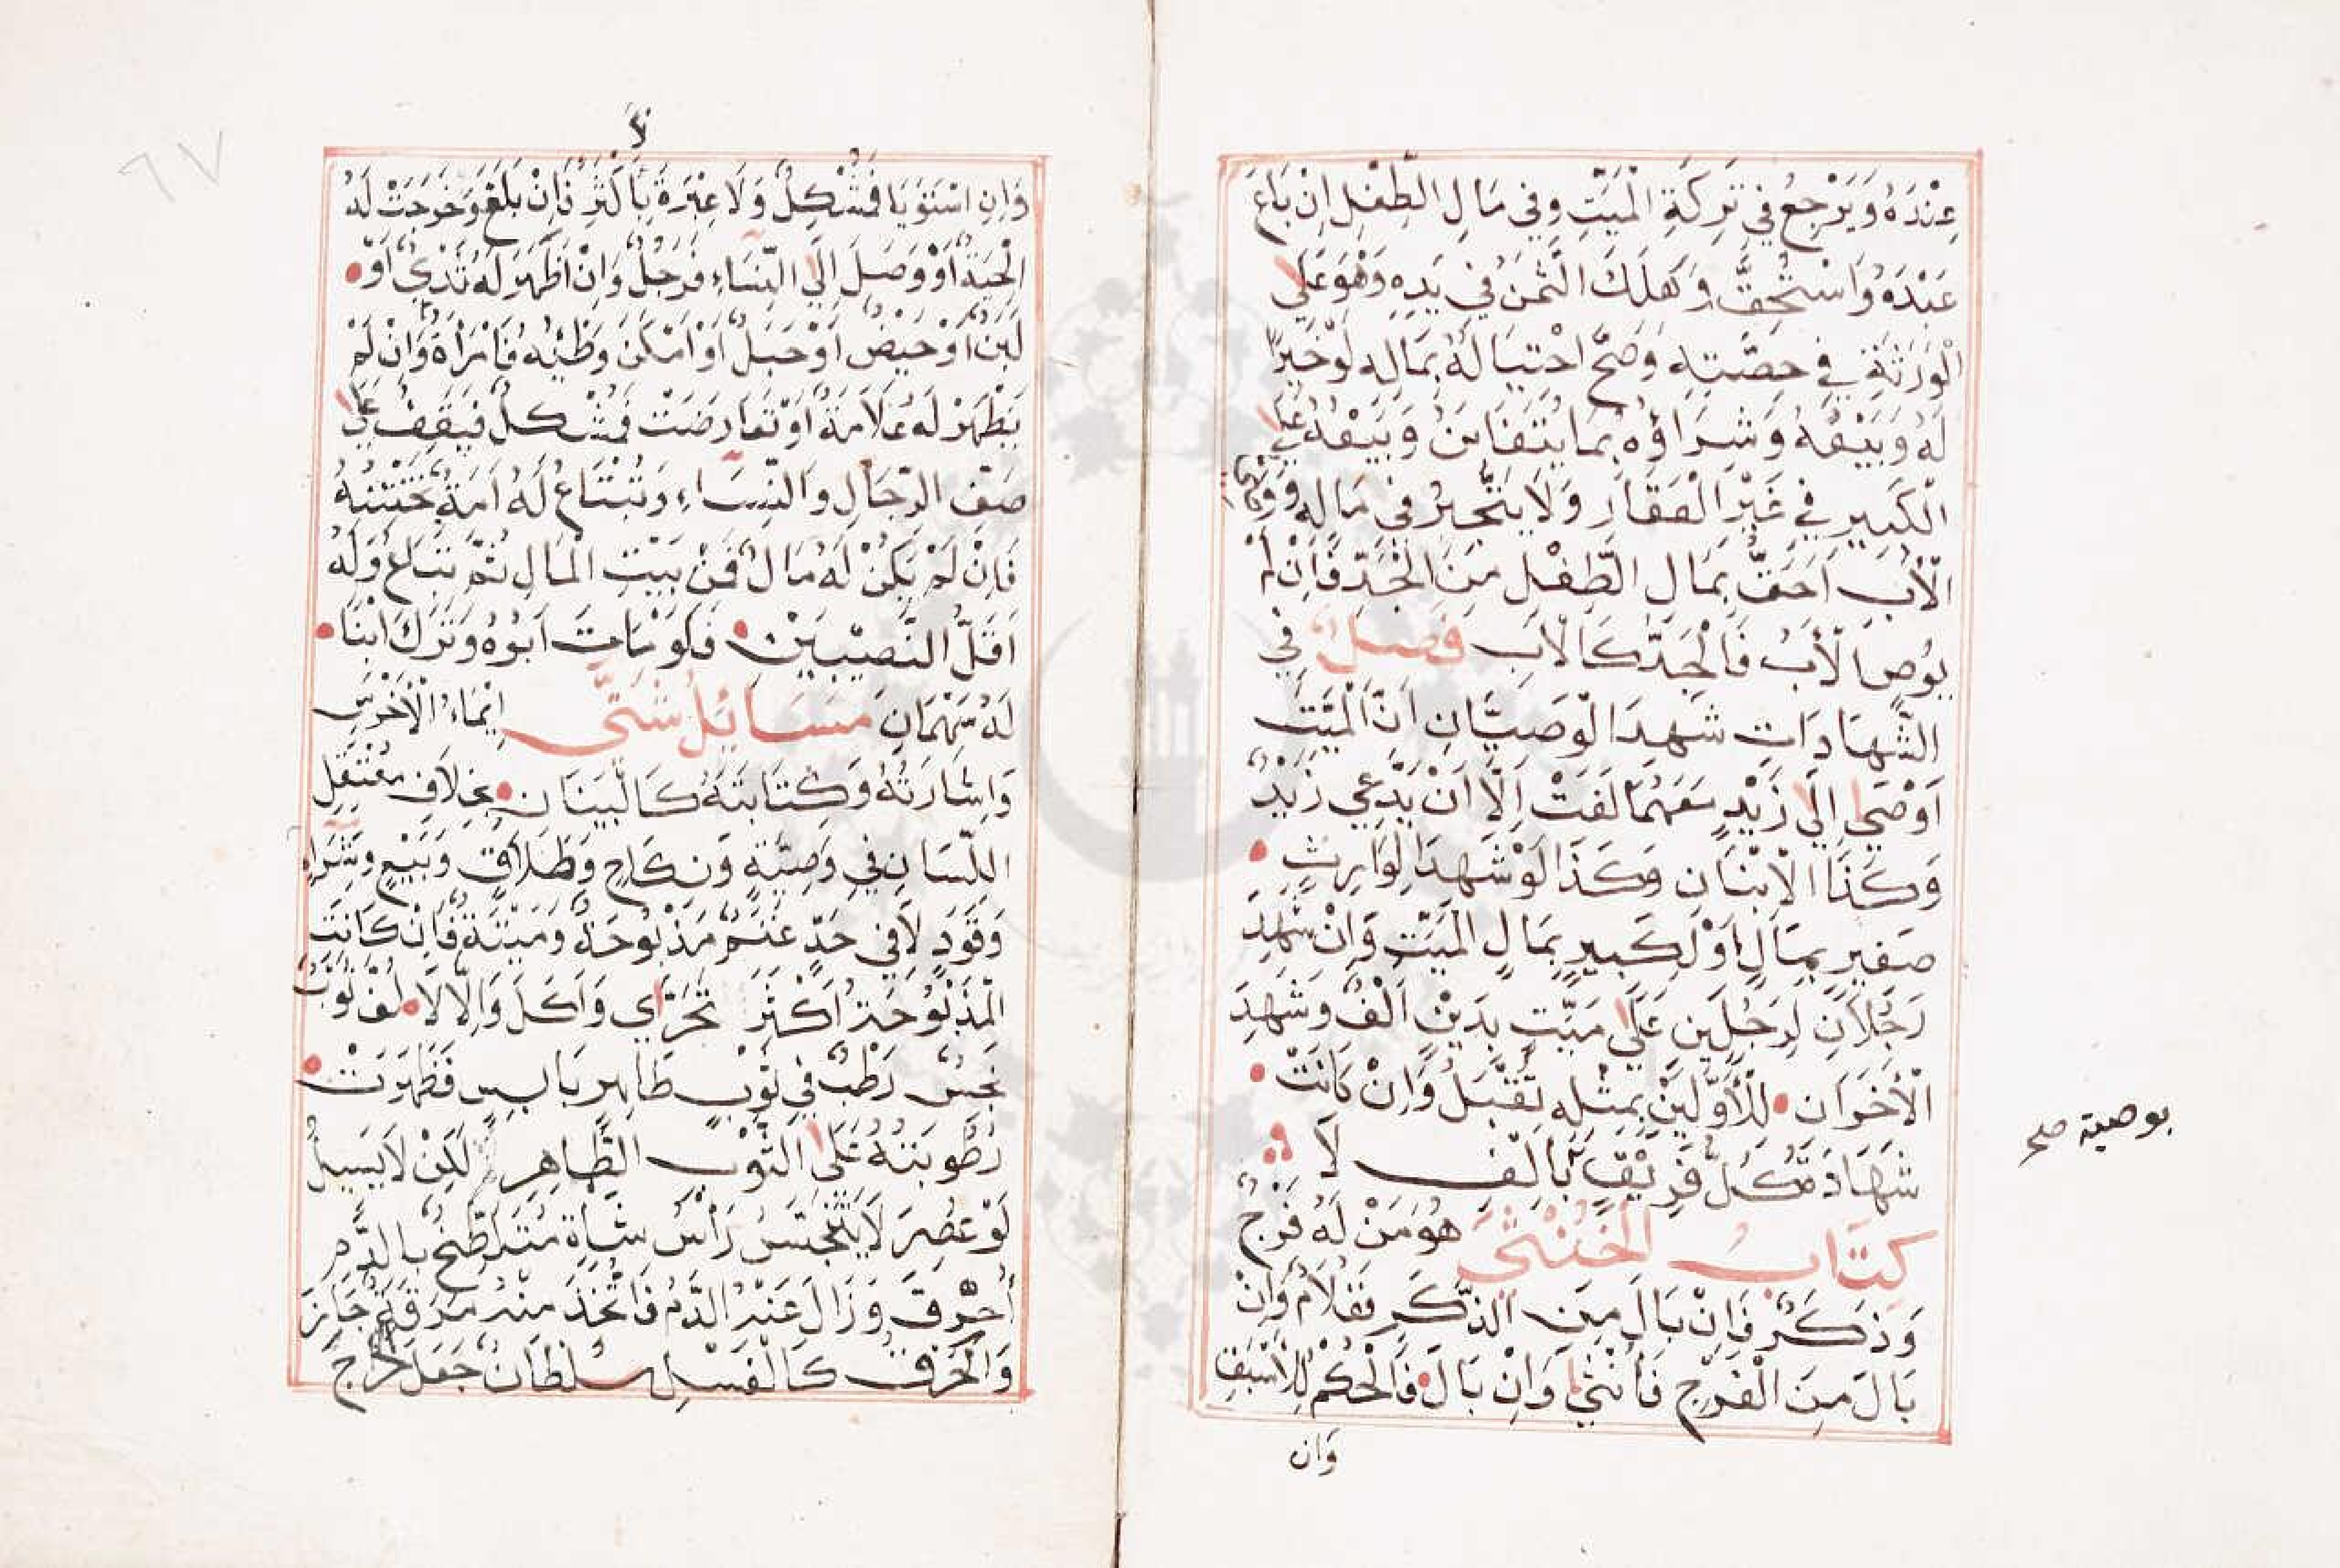 عِنْدَهُ وَيَرْجِعُ فِي تَرِكَةِ الْمَيِّتِ وَفِي مَالِ الطِّفْلِ إِنْ بَاعَ
عَبْدَهُ وَاسْتُحِقَّ وَهَلَكَ الثَّمَنُ فِي يَدِهِ وَهُوَ عَلَى
الْوَرَثَةِ فِي حِصَّتِهِ وَصَحَّ احْتِيَالُهُ بِمَالِهِ لَوْ خَيْرًا
لَهُ وَبَيْعُهُ وَشِرَاؤُهُ بِمَا يُتَغَابَنُ وَبَيْعُهُ عَلَى
الْكَبِيرِ فِي غَيْرِ الْعَقَارِ وَلَا يَتَّجِرُ فِي مَالِهِ وَوَصِيُّ
الْأَبِ أَحَقُّ بِمَالِ الطِّفْلِ مِنَ الْجَدِّ فَإِنْ لَمْ
يُوصِ الْأَبُ فَالْجَدُّ كَالْأَبِ فَصْلٌ فِي
الشَّهَادَاتِ شَهِدَ الْوَصِيَّانِ أَنَّ الْمَيِّتَ
أَوْصَى إِلَى زَيْدٍ مَعَهُمَا لَغَتْ إِلَّا أَنْ يَدَّعِيَ زَيْدٌ
وَكَذَا الْإِبْنَانِ وَكَذَا لَوْ شَهِدَا لِوَارِثٍ
صَغِيرٍ بِمَالٍ أَوْ لِكَبِيرٍ بِمَالِ الْمَيِّتِ وَإِنْ شَهِدَ
رَجُلَانِ لِرَجُلَيْنِ عَلَى مَيِّتٍ بِدَيْنِ أَلْفٍ وَشَهِدَ
الْأَخَرَانِ لِلْأَوَّلَيْنِ بِمِثْلِهِ تُقْبَلُ وَإِنْ كَانَتْ
شَهَادَةُ كُلِّ فَرِيقٍ بِأَلِفٍ لَا
بوصية صح
كِتَابُ الْخُنْثَى هُوَ مَنْ لَهُ فَرْجٌ
وَذَكَرٌ فَإِنْ بَالَ مِنَ الذَّكَرِ فَغُلَامٌ وَإِنْ
بَالَ مِنَ الْفَرْجِ فَأُنْثَى وَإِنْ بَالَ فَالْحُكْمُ لِلْأَسْبَقِ
وَان
وَإِنِ اسْتَوَيَا فَمُشْكِلٌ وَلَا عِبْرَةَ بِالْكَثْرَةِ فَإِنْ بَلَغَ وَخَرَجَتْ لَهُ
لِحْيَةٌ أَوْ وَصَلَ إِلَى النِّسَاءِ فَرَجُلٌ وَإِنْ ظَهَرَ لَهُ ثَدْيٌ أَوْ
لَبَنٌ أَوْ حَيْضٌ أَوْ حَبَلٌ أَوْ أَمْكَنَ وَطْئُهُ فَامْرَأَةٌ وَإِنْ لَمْ
يَظْهَرْ لَهُ عَلَامَةٌ أَوْ تَعَارَضَتْ فَمُشْكِلٌ فَيَقِفُ عَلَى
صَفِّ الرِّجَالِ وَالنِّسَاءِ وَتُبْتَاعُ لَهُ أَمَةٌ تَخْتِنُهُ
فَإِنْ لَمْ يَكُنْ لَهُ مَالٌ فَمِنْ بَيْتِ الْمَالِ ثُمَّ تُبَاعُ وَلَهُ
أَقَلُّ النَّصِيبَيْنِ فَلَوْ مَاتَ أَبُوهُ وَتَرَكَ ابْنًا
لَهُ سَهْمَانِ مَسَائِلُ شَتَّى إِيمَاءُ الْأَخْرَسِ
وَإِشَارَتُهُ وَكِتَابَتُهُ كَالْبَيَانِ بِخِلَافِ مُعْتَقَلِ
اللِّسَانِ فِي وَصِيَّةٍ وَنِكَاحٍ وَطَلَاقٍ وَبَيْعٍ وَشِرَاءٍ
وَقَوَدٍ لَا فِي حَدٍّ غَنَمٌ مَذْبُوحَةٌ وَمَيْتَةٌ فَإِنْ كَانَتِ
الْمَذْبُوحَةُ أَكْثَرَ تَحَرَّى وَأَكَلَ وَإِلَّا لَا لُفَّ ثَوْبٌ
نَجِسٌ رَطْبٌ فِي ثَوْبٍ طَاهِرٍ يَابِسٍ فَظَهَرَتْ
رُطُوبَتُهُ عَلَى الثَّوْبِ الطَّاهِرِ لَكِنْ لَا يَسِيلُ
لَوْ عُصِرَ لَا يَتَنَجَّسُ رَأْسُ شَاةٍ مُتَلَطِّخٌ بِالدَّمِ
أُحْرِقَ وَزَالَ عَنْهُ الدَّمُ فَاتُّخِذَ مِنْهُ مَرَقَةٌ جَازَ
وَالْحَرْقُ كَالْغَسْلِ سُلْطَانٌ جَعَلَ الْخَرَاجَ